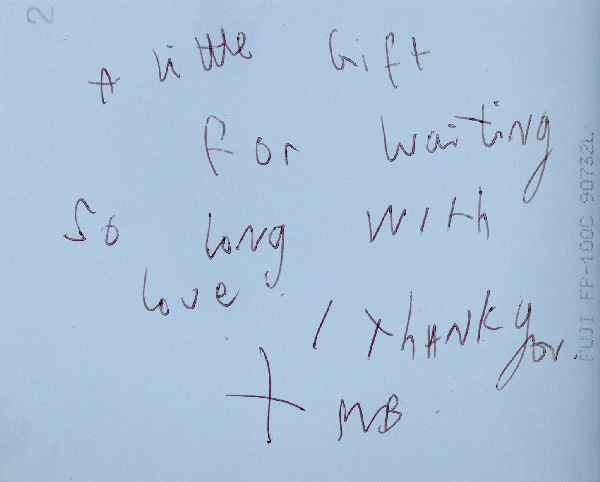 2
A little Gift
For waiting
So long with
love
/ thank you.
+ MB
FUJI FP-100C 90732L